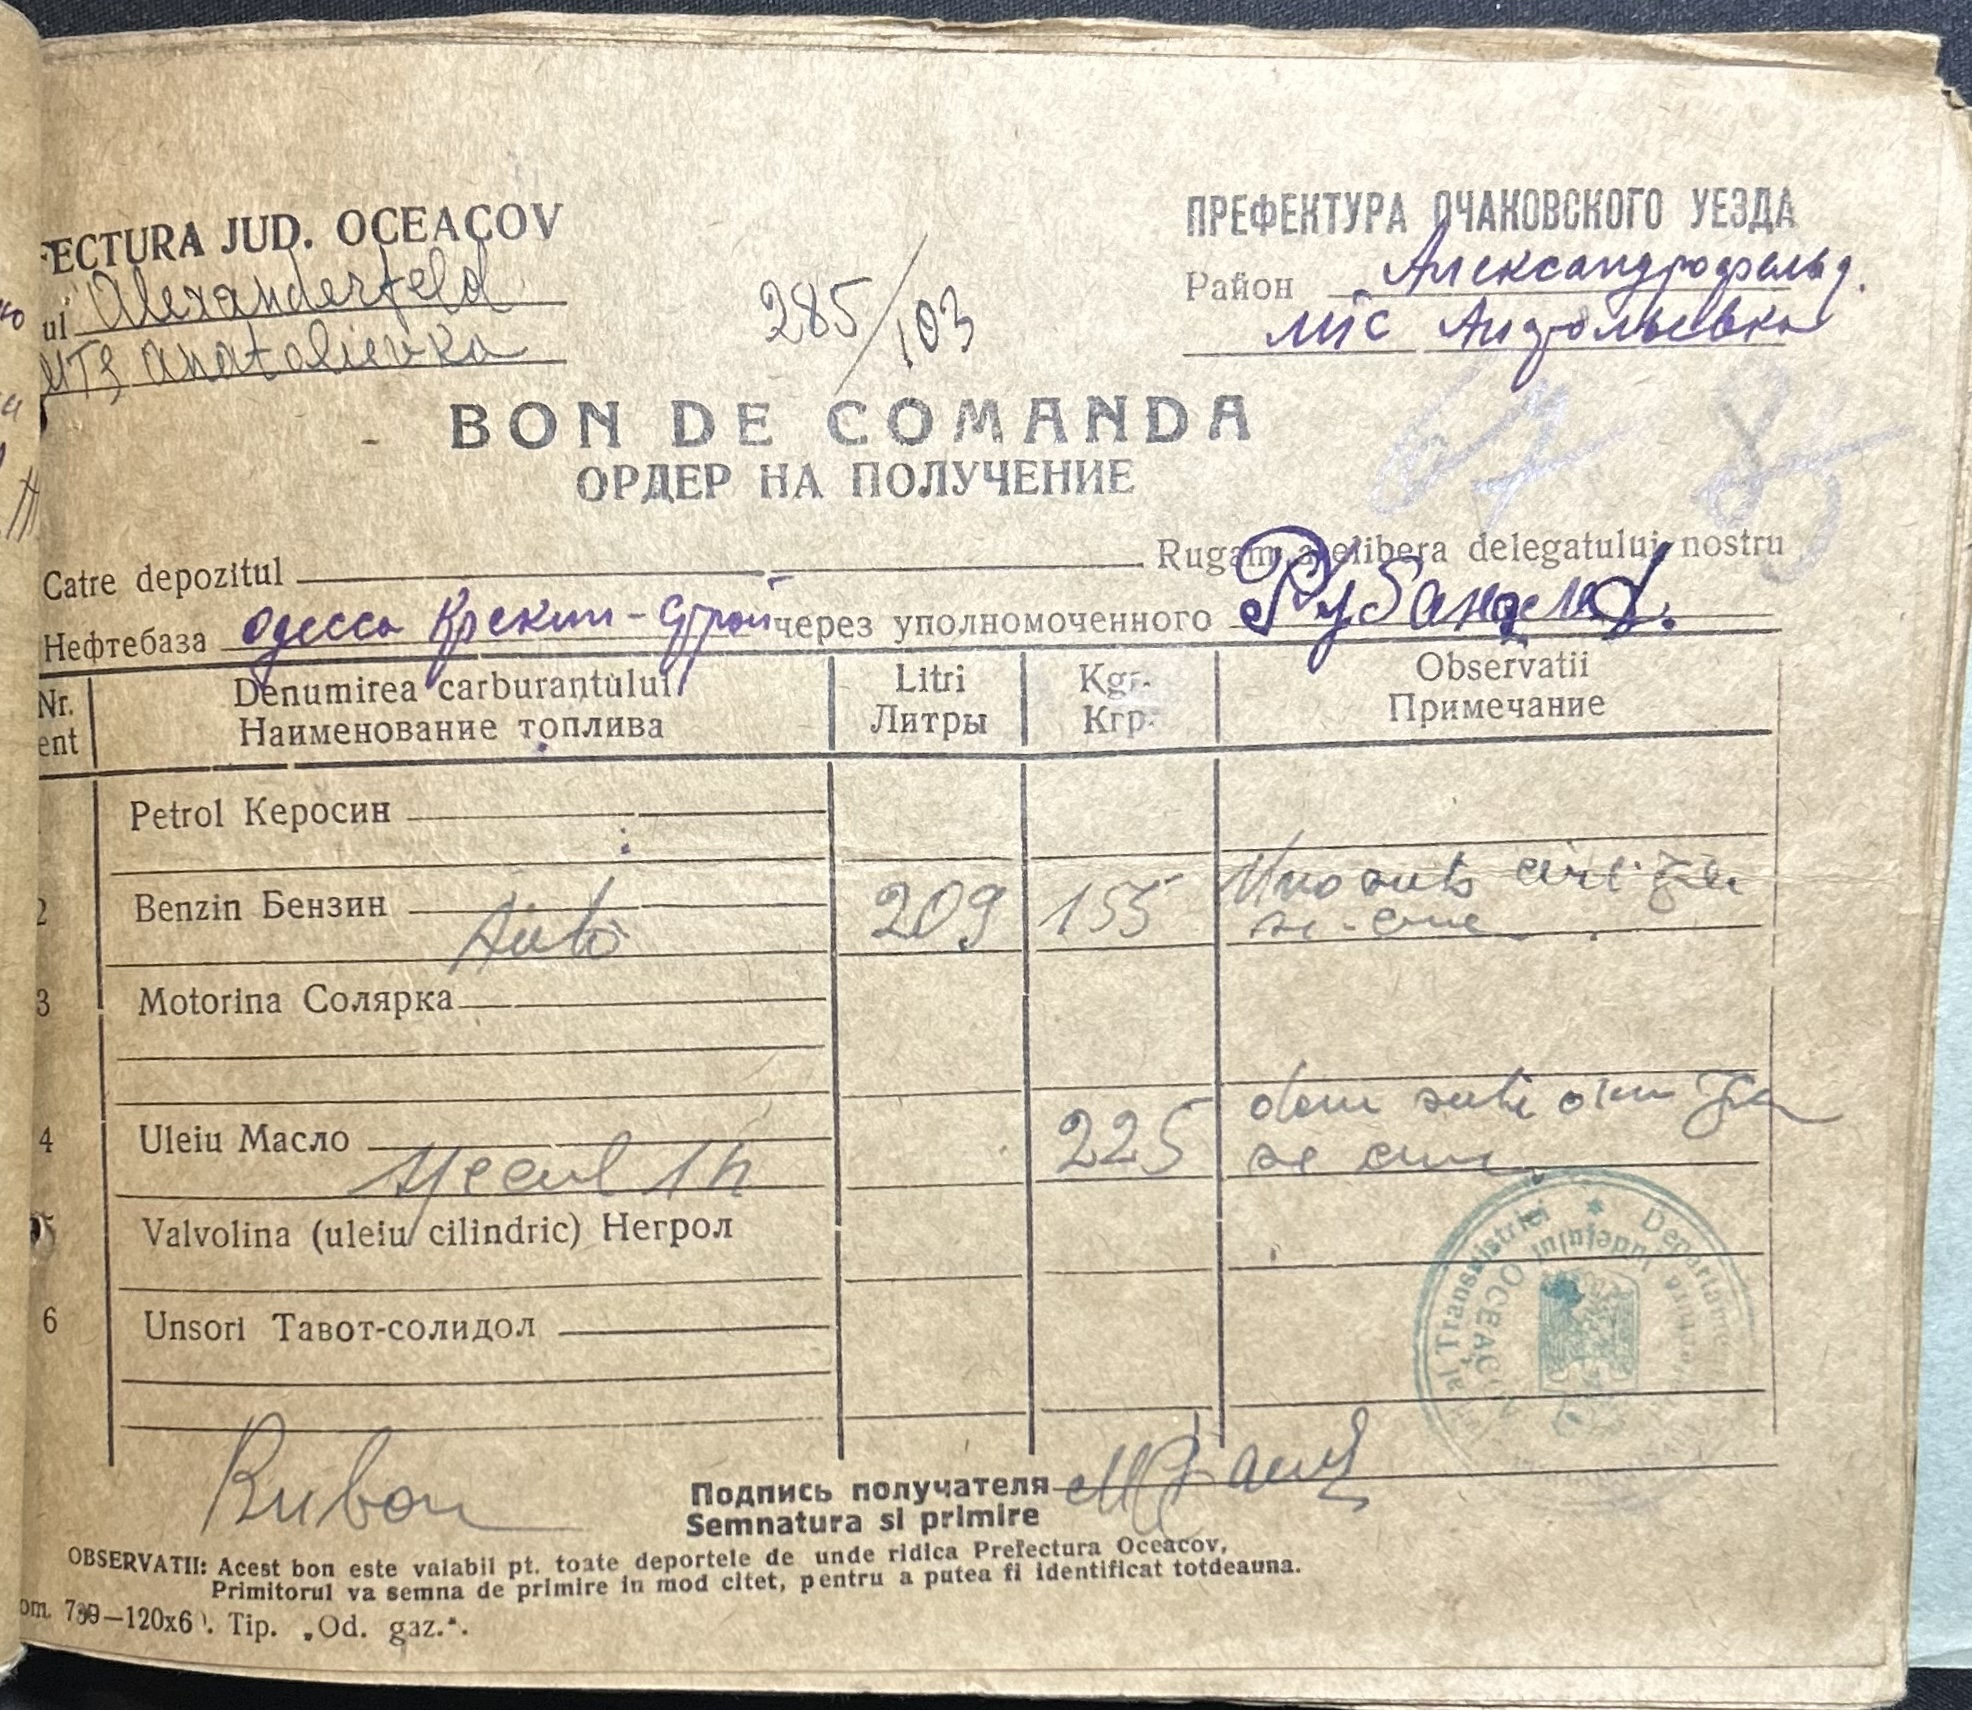 FECTURA JUD. OCEACOV
ul Alexanderfeld
MTS Anatolievka
285/103
ПРЕФЕКТУРА ОЧАКОВСКОГО УЕЗДА
Район Александрофельд.
мтс
BON DE COMANDA
ОРДЕР НА ПОЛУЧЕНИЕ
Catre depozitul Rugam a elibera delegatului nostru
Нефтебаза Одесса Крекин-Строй через уполномоченного
Nr. Denumirea carburantului Litri Kgr. Observatii
ent Наименование топлива Литры Кгр. Примечание
Petrol Керосин
2 Benzin Бензин Auto 209 155 Una suta
3 Motorina Солярка
4 Uleiu Масло 225 doua sute
5 Valvolina (uleiu cilindric) Негрол
6 Unsori Тавот-солидол
al Transnistriei Departame
Judeţului OCEACOV
Подпись получателя
Semnatura si primire
OBSERVATII: Acest bon este valabil pt. toate deportele de unde ridica Prefectura Oceacov,
Primitorul va semna de primire in mod citet, pentru a putea fi identificat totdeauna.
om. 739—120x6 . Tip. „Od. gaz.“.